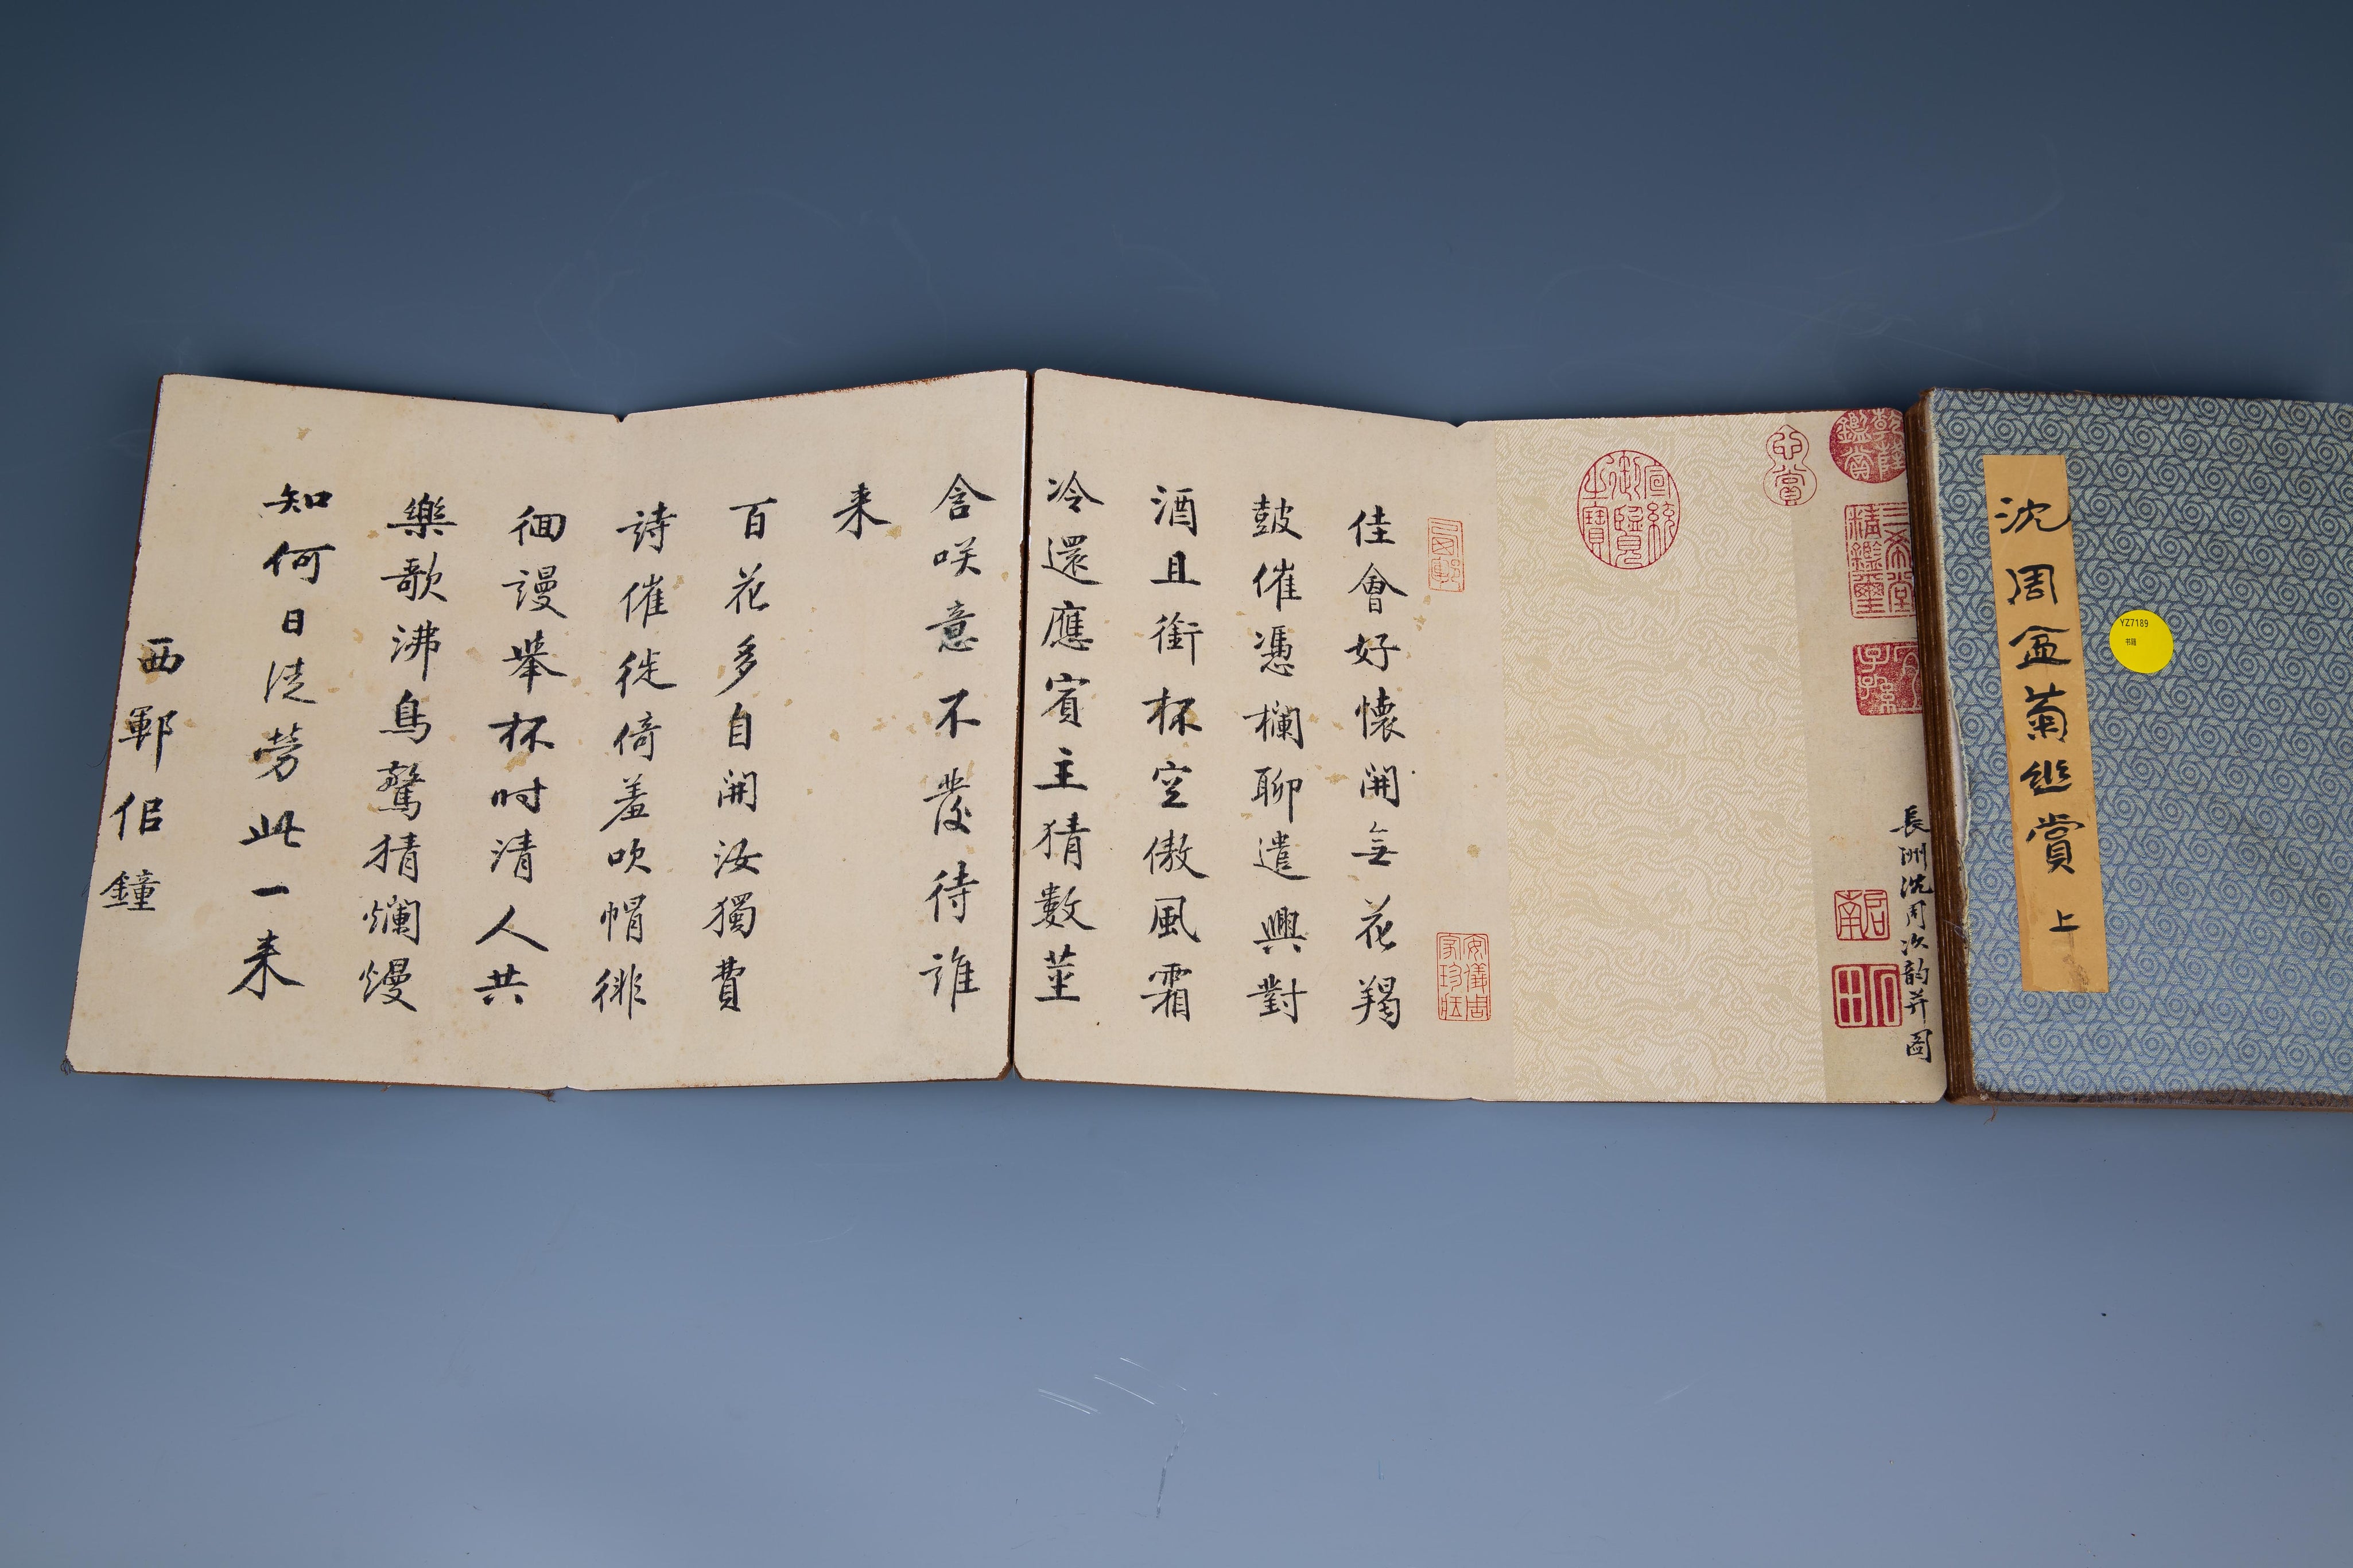 沈周盆菊幽賞 上
YZ7189
书籍
長洲沈周次韵并圖
乾隆鑑賞
三希堂精鑑璽
宜子孫
启南
石田
宣統御覽之寶
安儀周家珍藏
佳會好懷開無花羯
鼓催憑欄聊遣興對
酒且銜杯空傲風霜
冷還應賓主猜數莖
含咲意不發待誰
来
百花多自開汝獨費
詩催徙倚羞吹帽徘
徊謾舉杯时清人共
樂歌沸鳥驚猜爛熳
知何日徒劳此一来
西鄆佀鐘